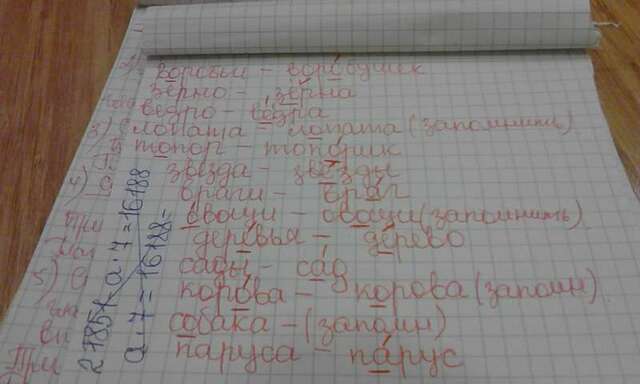 воробьи - воробушек
зерно - зёрна
ведро - вёдра
лопата - лопата (запомнить)
топор - топорик
звезда - звёзды
враги - враг
овощи - овощи (запомнить)
деревья - дерево
сады - сад
корова - корова (запомн)
собака - (запомн)
паруса - парус
3)
4)
При
5)
При
27851 - а · 7 = 16188
а · 7 = 16188 -